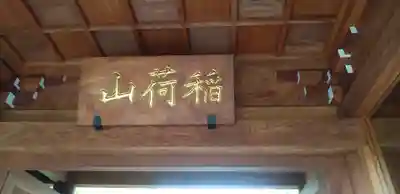 稲荷山